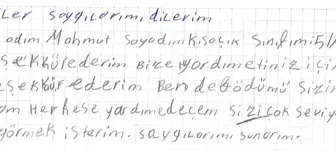 ler saygılarımı dilerim
adım Mahmut Soyadım kısacık Sınıfım 5/
şekkürederim Bize yardımetiniz içi
eşekkür ederim Ben de büdümü sizin
Herkese yardımedecem sizi çok seviy
görmek isterim. saygılarımı sunarım.